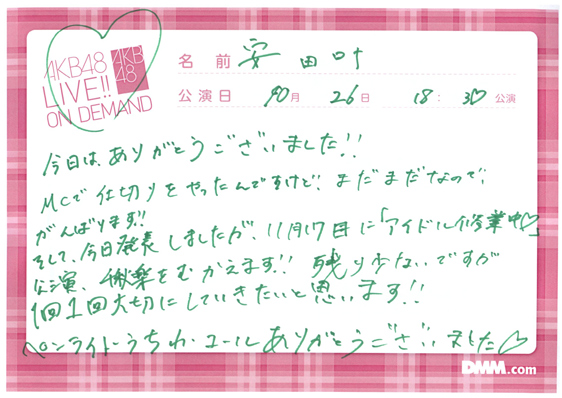 AKB48
LIVE!!
ON DEMAND
AKB
48
名前 安田叶
公演日 10月 26日 18:30 公演
今日は、ありがとうございました!!
MCで仕切りをやったんですけど、まだまだなので、
がんばります!!
そして、今日発表しましたが、11月17日に「アイドル修業中♡」
公演、千秋楽をむかえます!! 残り少ないですが
1回1回大切にしていきたいと思います!!
ペンライト・うちわ・コールありがとうございました♡
DMM.com